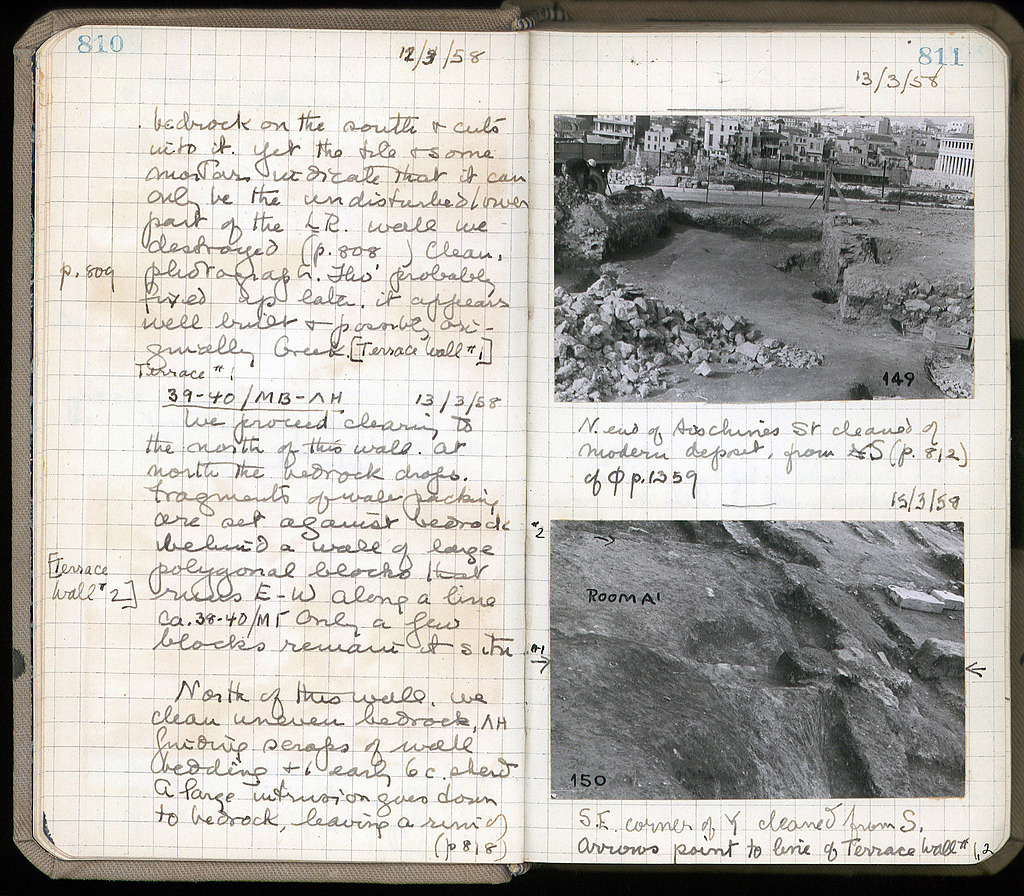 810
12/3/58
bedrock on the south + cuts
into it. Yet the tile + some
mortar indicate that it can
only be the undisturbed lower
part of the LR. wall we
destroyed (p. 808 ) Clean,
p. 809
photograph. Tho' probably
fixed up later, it appears
well built + possibly ori-
ginally Greek. [Terrace Wall #1]
Terrace #1
39-40/MB-ΛH 13/3/58
We proceed clearing to
the north of this wall. At
north the bedrock drops.
Fragments of wall packing
are set against bedrock
behind a wall of large
[Terrace
Wall #2]
polygonal blocks that
runs E-W along a line
ca. 38-40/MΓ Only a few
blocks remain it situ
North of this wall, we
clean uneven bedrock, ΛH
finding scraps of wall
bedding + 1 early 6c. sherd
A large intrusion goes down
to bedrock, leaving a rim of
(p 818)
811
13/3/58
149
N. end of Aeschines St cleaned of
modern deposit, from S (p. 812)
of Φ p. 1359
15/3/58
#2
ROOM A1
#1
150
S.E. corner of Y cleaned from S.
Arrows point to line of Terrace Wall #1,2